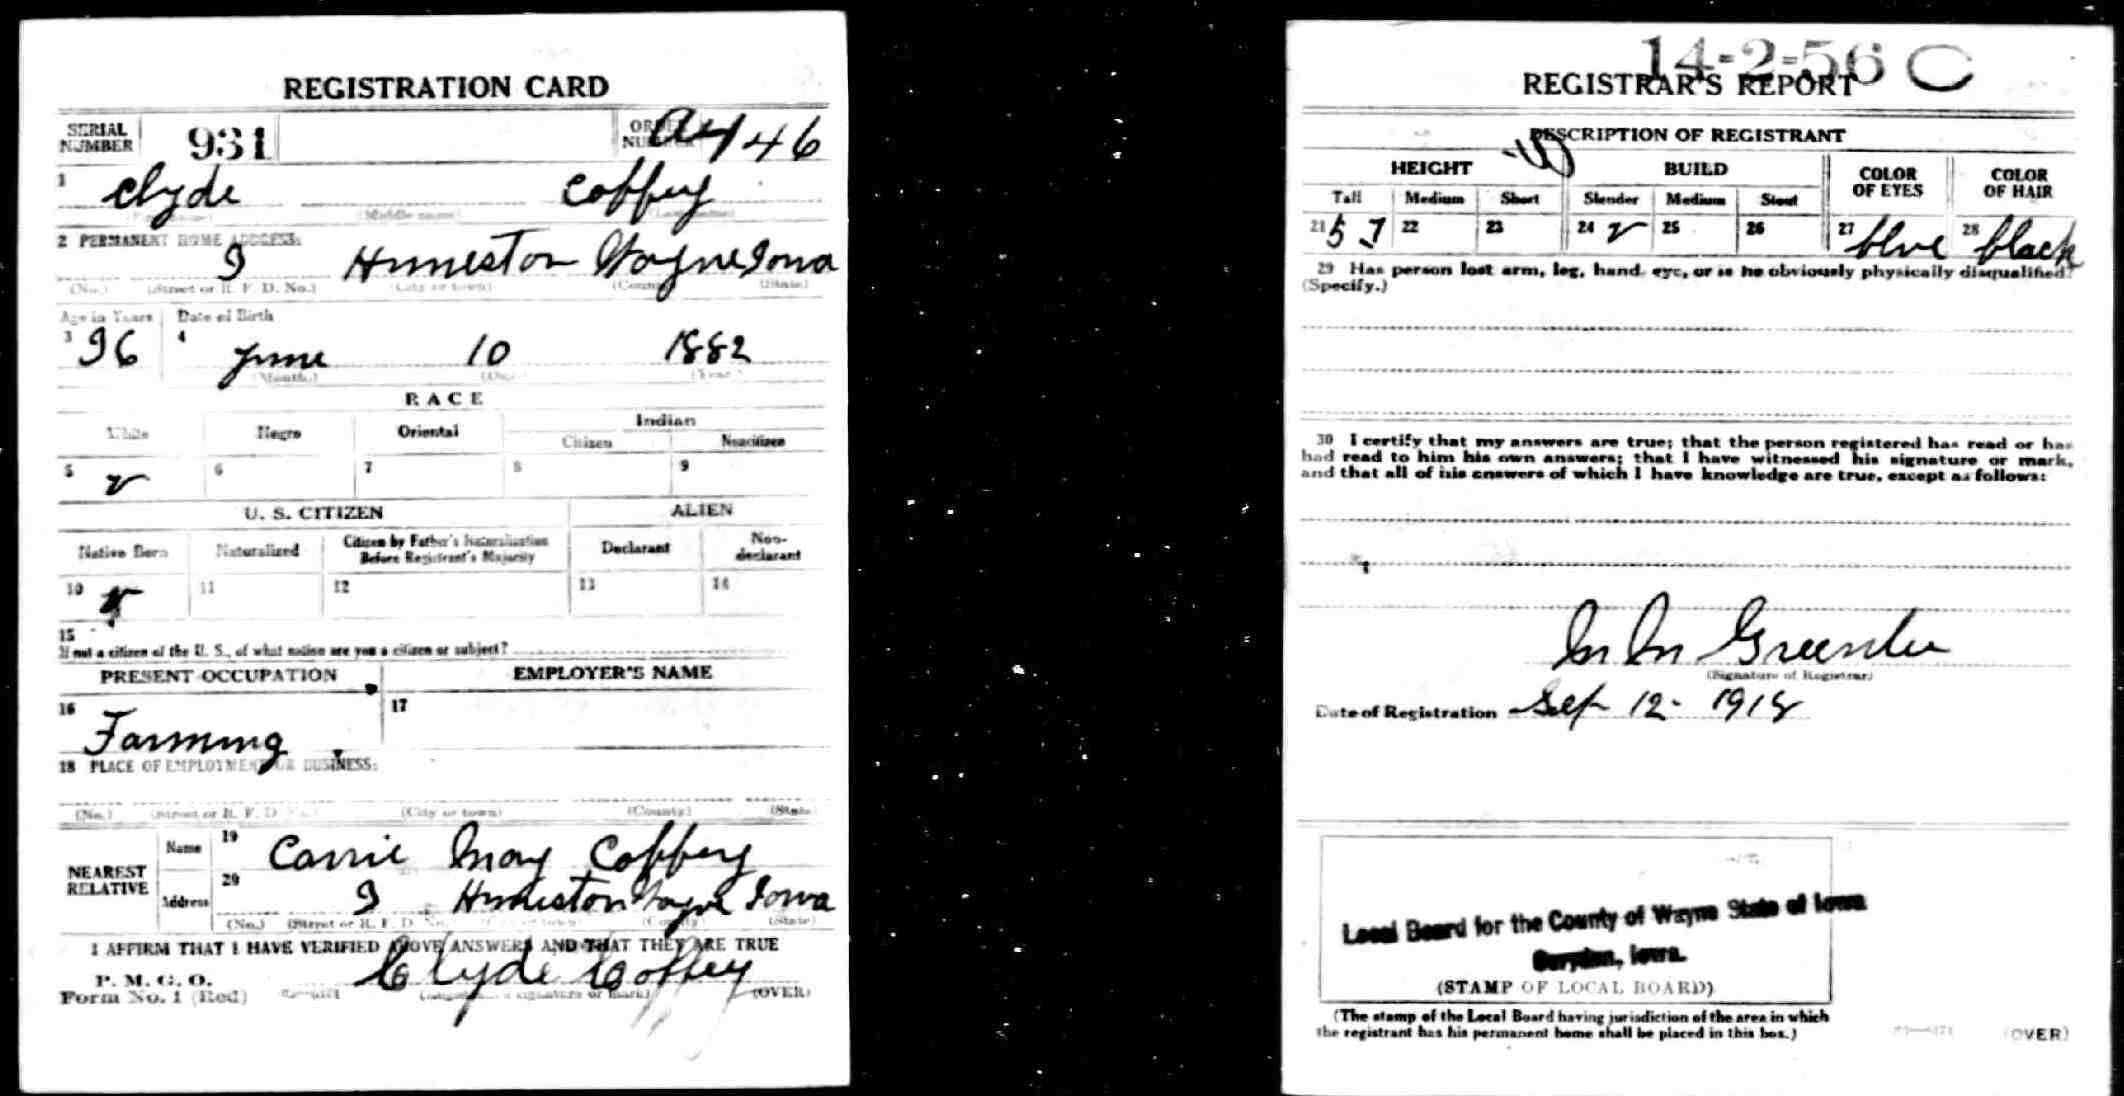 REGISTRATION CARD
SERIAL NUMBER 931 ORDER NUMBER A446
1 Clyde Coffey
(Middle name)
2 PERMANENT HOME ADDRESS:
Humeston Wayne Iowa
(No.) (Street or R. F. D. No.) (City or town) (County) (State)
Age in Years Date of Birth
3 36 4 June 10 1882
(Month.) (Day.) (Year.)
RACE
White Negro Oriental Indian
Citizen Noncitizen
5 ✓ 6 7 8 9
U. S. CITIZEN ALIEN
Native Born Naturalized Citizen by Father's Naturalization Before Registrant's Majority Declarant Non-declarant
10 ✓ 11 12 13 14
15
If not a citizen of the U. S., of what nation are you a citizen or subject?
PRESENT OCCUPATION EMPLOYER'S NAME
16 Farming 17
18 PLACE OF EMPLOYMENT OR BUSINESS:
(No.) (Street or R. F. D. No.) (City or town) (County) (State)
NEAREST RELATIVE
Name 19 Carrie May Coffey
Address 20 Humeston Wayne Iowa
(No.) (Street or R. F. D. No.) (City or town) (County) (State)
I AFFIRM THAT I HAVE VERIFIED ABOVE ANSWERS AND THAT THEY ARE TRUE
P. M. G. O.
Form No. 1 (Red) Clyde Coffey
(Registrant's signature or mark) (OVER)
14-2-56 C
REGISTRAR'S REPORT
DESCRIPTION OF REGISTRANT
HEIGHT BUILD COLOR OF EYES COLOR OF HAIR
Tall Medium Short Slender Medium Stout
21 5 7 22 23 24 ✓ 25 26 27 blue 28 black
29 Has person lost arm, leg, hand, eye, or is he obviously physically disqualified?
(Specify.)
30 I certify that my answers are true; that the person registered has read or has
had read to him his own answers; that I have witnessed his signature or mark,
and that all of his answers of which I have knowledge are true, except as follows:
(Signature of Registrar)
Date of Registration Sep 12 - 1918
Local Board for the County of Wayne State of Iowa
Corydon, Iowa.
(STAMP OF LOCAL BOARD)
(The stamp of the Local Board having jurisdiction of the area in which
the registrant has his permanent home shall be placed in this box.)
(OVER)